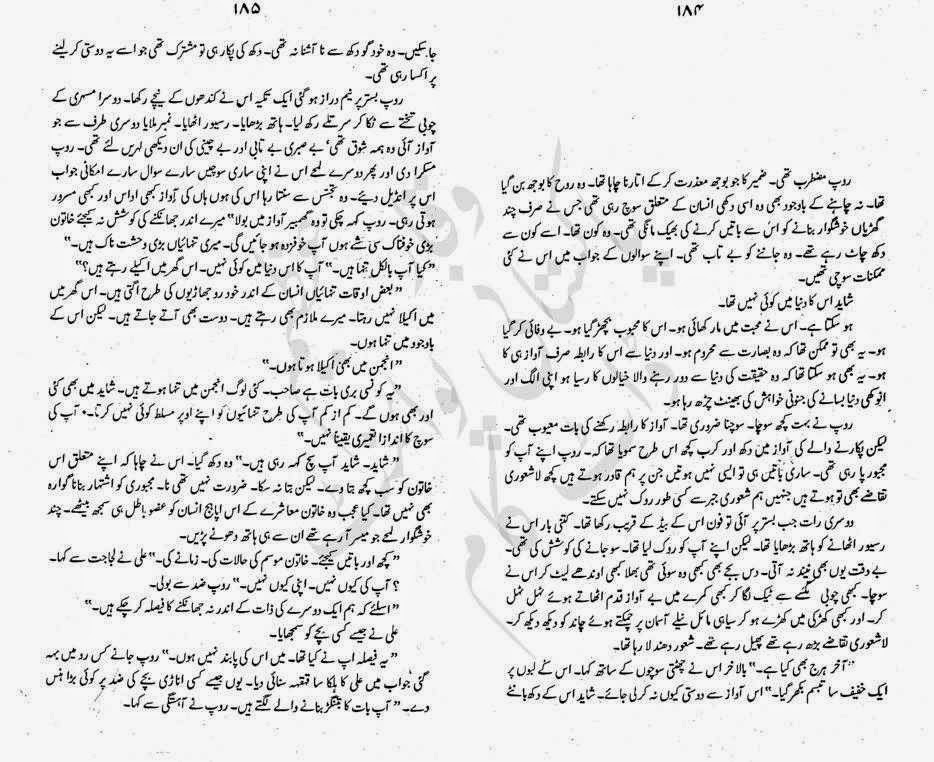 ۱۸۴
روپ مضطرب تھی۔ ضمیر کا جو بوجھ معذرت کر کے اتارنا چاہا تھا۔ وہ روح کا بوجھ بن گیا
تھا۔ نہ چاہنے کے باوجود بھی وہ اسی دکھی انسان کے متعلق سوچ رہی تھی جس نے صرف چند
گھڑیاں خوشگوار بنانے کو اس سے باتیں کرنے کی بھیک مانگی تھی۔ وہ کون تھا۔ اسے کون سے
دکھ چاٹ رہے تھے۔ وہ جاننے کو بے تاب تھی۔ اپنے سوالوں کے جواب میں اس نے کئی
ممکنات سوچی تھیں۔
شاید اس کا دنیا میں کوئی نہیں تھا۔
ہو سکتا ہے۔ اس نے محبت میں مار کھائی ہو۔ اس کا محبوب بچھڑ گیا ہو۔ بے وفائی کر گیا
ہو۔ یہ بھی تو ممکن تھا کہ وہ بصارت سے محروم ہو۔ اور دنیا سے اس کا رابطہ صرف آواز ہی کا
ہو۔ یہ بھی ہو سکتا تھا کہ وہ حقیقت کی دنیا سے دور رہنے والا خیالوں کا رسیا ہو اپنی الگ اور
انوکھی دنیا بسانے کی جنونی خواہش کی بھینٹ چڑھ رہا ہو۔
روپ نے بہت کچھ سوچا۔ سوچنا ضروری تھا۔ آواز کا رابطہ رکھنے کی بات معیوب تھی۔
لیکن پکارنے والے کی آواز میں دکھ اور کرب کچھ اس طرح سمویا تھا کہ۔ روپ اپنے آپ کو
مجبور پا رہی تھی۔ ساری باتیں ہی تو ایسی نہیں ہوتیں جن پر ہم قادر ہوتے ہیں کچھ لاشعوری
تقاضے بھی تو ہوتے ہیں جنہیں ہم شعوری جبر سے کسی طور روک نہیں سکتے۔
دوسری رات جب بستر پر آئی تو فون اس کے بیڈ کے قریب رکھا تھا۔ کتنی بار اس نے
رسیور اٹھانے کو ہاتھ بڑھایا تھا۔ لیکن اپنے آپ کو روک لیا تھا۔ سو جانے کی کوشش کی تھی۔
بے وقت یوں بھی نیند نہ آتی۔ دس بجے بھی کبھی وہ سوئی تھی بھلا کبھی اوندھے لیٹ کر اس نے
سوچا۔ کبھی چوبی ٹیک لگا کر کبھی کمرے میں بے آواز قدم اٹھاتے ہوئے ٹہل ٹہل
کر۔ اور کبھی کھڑکی میں کھڑے ہو کر سیاہی مائل نیلے آسمان پر چمکتے ہوئے چاند کو دیکھ دیکھ کر۔
لاشعوری تقاضے بڑھ رہے تھے پھیل رہے تھے۔ شعور دھندلا رہا تھا۔
"آخر ہرج بھی کیا ہے۔" بالاخر اس نے چھبتی سوچوں کے ساتھ کہا۔ اس کے لبوں پر
ایک خفیف سا تبسم بکھر گیا۔" اس آواز سے دوستی کیوں نہ کر لی جائے۔ شاید اس کے دکھ بانٹے
۱۸۵
جا سکیں۔ وہ خود گو دکھ سے نا آشنا نہ تھی۔ دکھ کی پکار ہی تو مشترک تھی جو اسے یہ دوستی کر لینے
پر اکسا رہی تھی۔
روپ بستر پر نیم دراز ہو گئی ایک تکیہ اس نے کندھوں کے نیچے رکھا۔ دوسرا مسہری کے
چوبی تختے سے ٹکا کر سر تلے رکھ لیا۔ ہاتھ بڑھایا۔ رسیور اٹھایا۔ نمبر ملایا دوسری طرف سے جو
آواز آئی وہ ہمہ شوق تھی' بے صبری بے تابی اور بے چینی کی ان دیکھی لہریں لئے تھی۔ روپ
مسکرا دی اور پھر دوسرے لمحے اس نے اپنی ساری سوچیں سارے سوال سارے امکانی جواب
اس پر انڈیل دیئے۔ وہ تجسس سے سنتا رہا اس کی ہوں ہاں کی آواز بھی اداس اور کبھی مسرور
ہوتی رہی۔ روپ کہہ چکی تو وہ گھمبیر آواز میں بولا" میرے اندر جھانکنے کی کوشش نہ کیجئے خاتون
بڑی خوفناک سی شے ہوں آپ خوفزدہ ہو جائیں گی۔ میری تنہائیاں بڑی وحشت ناک ہیں۔"
"کیا آپ بالکل تنہا ہیں۔" آپ کا اس دنیا میں کوئی نہیں۔ اس گھر میں اکیلے رہتے ہیں؟"
"بعض اوقات تنہائیاں انسان کے اندر خود رو جھاڑیوں کی طرح اگتی ہیں۔ اس گھر میں
میں اکیلا نہیں رہتا۔ میرے ملازم بھی رہتے ہیں۔ دوست بھی آتے جاتے ہیں۔ لیکن اس کے
باوجود میں تنہا ہوں۔
"انجمن میں بھی اکیلا ہوتا ہوں۔"
"یہ کونسی بری بات ہے صاحب۔ کئی لوگ انجمن میں تنہا ہوتے ہیں۔ شاید میں بھی کئی
اور بھی ہوں گے۔ کم از کم آپ کی طرح تنہائیوں کو اپنے اوپر مسلط کوئی نہیں کرتا۔ آپ کی
سوچ کا انداز تعمیری یقیناً نہیں۔"
"شاید۔ شاید آپ سچ کہہ رہی ہیں۔" وہ دکھ گیا۔ اس نے چاہا کہ اپنے متعلق اس
خاتون کو سب کچھ بتا دے۔ لیکن بتا نہ سکا۔ ضرورت نہیں تھی نا۔ مجبوری کو اشتہار بنانا گوارہ
بھی نہیں تھا۔ کیا عجب وہ خاتون معاشرے کے اس اپاہج انسان کو عضو باطل ہی سمجھ بیٹھے۔ چند
خوشگوار لمحے جو میسر آ رہے تھے ان سے ہی ہاتھ دھونے پڑیں۔
"کچھ اور باتیں کیجئے۔ خاتون موسم کی حالات کی۔ زمانے کی۔" علی نے لجاجت سے کہا۔
؟ آپ کی کیوں نہیں۔ اپنی کیوں نہیں۔" روپ ضد سے بولی۔
"اسلئے کہ ہم ایک دوسرے کی ذات کے اندر نہ جھانکنے کا فیصلہ کر چکے ہیں۔"
علی نے جیسے کسی بچے کو سمجھایا۔
"یہ فیصلہ اپ نے کیا تھا۔ میں اس کی پابند نہیں ہوں۔" روپ جانے کس رو میں بہہ
گئی جواب میں علی کا ہلکا سا قہقہہ سنائی دیا۔ یوں جیسے کسی اناڑی بچے کی ضد پر کوئی بڑا ہنس
دے۔ "آپ بات کا بتنگڑ بنانے والے لگتے ہیں۔ روپ نے آہستگی سے کہا۔